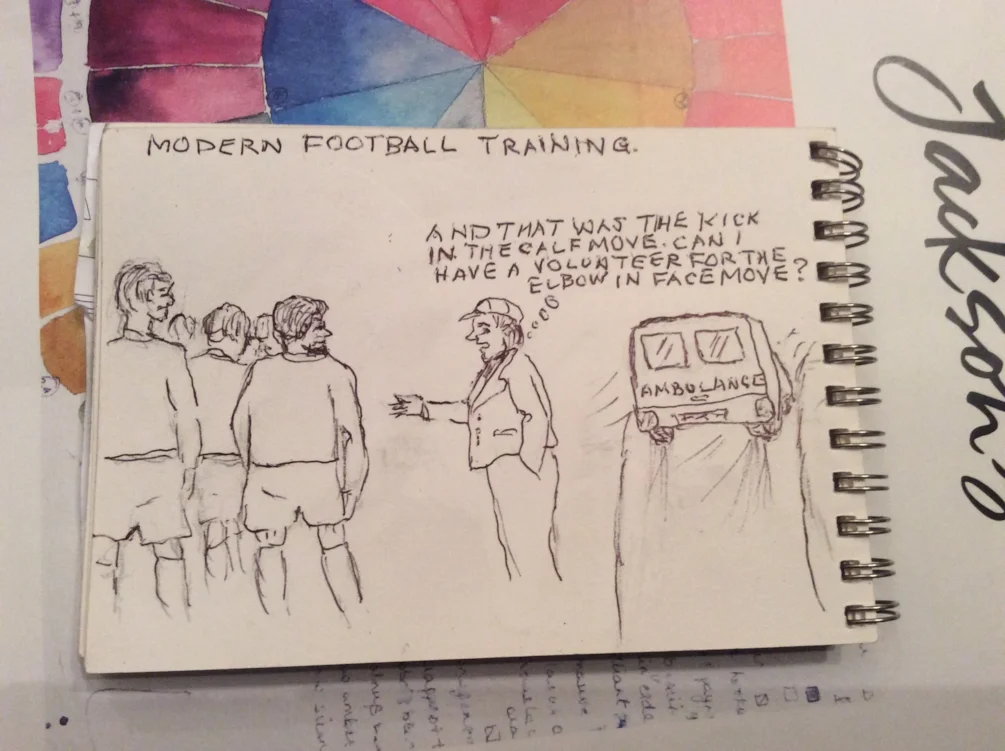 MODERN FOOTBALL TRAINING.
AND THAT WAS THE KICK
IN THE CALF MOVE. CAN I
HAVE A VOLUNTEER FOR THE
ELBOW IN FACE MOVE?
AMBULANCE
Jackson's